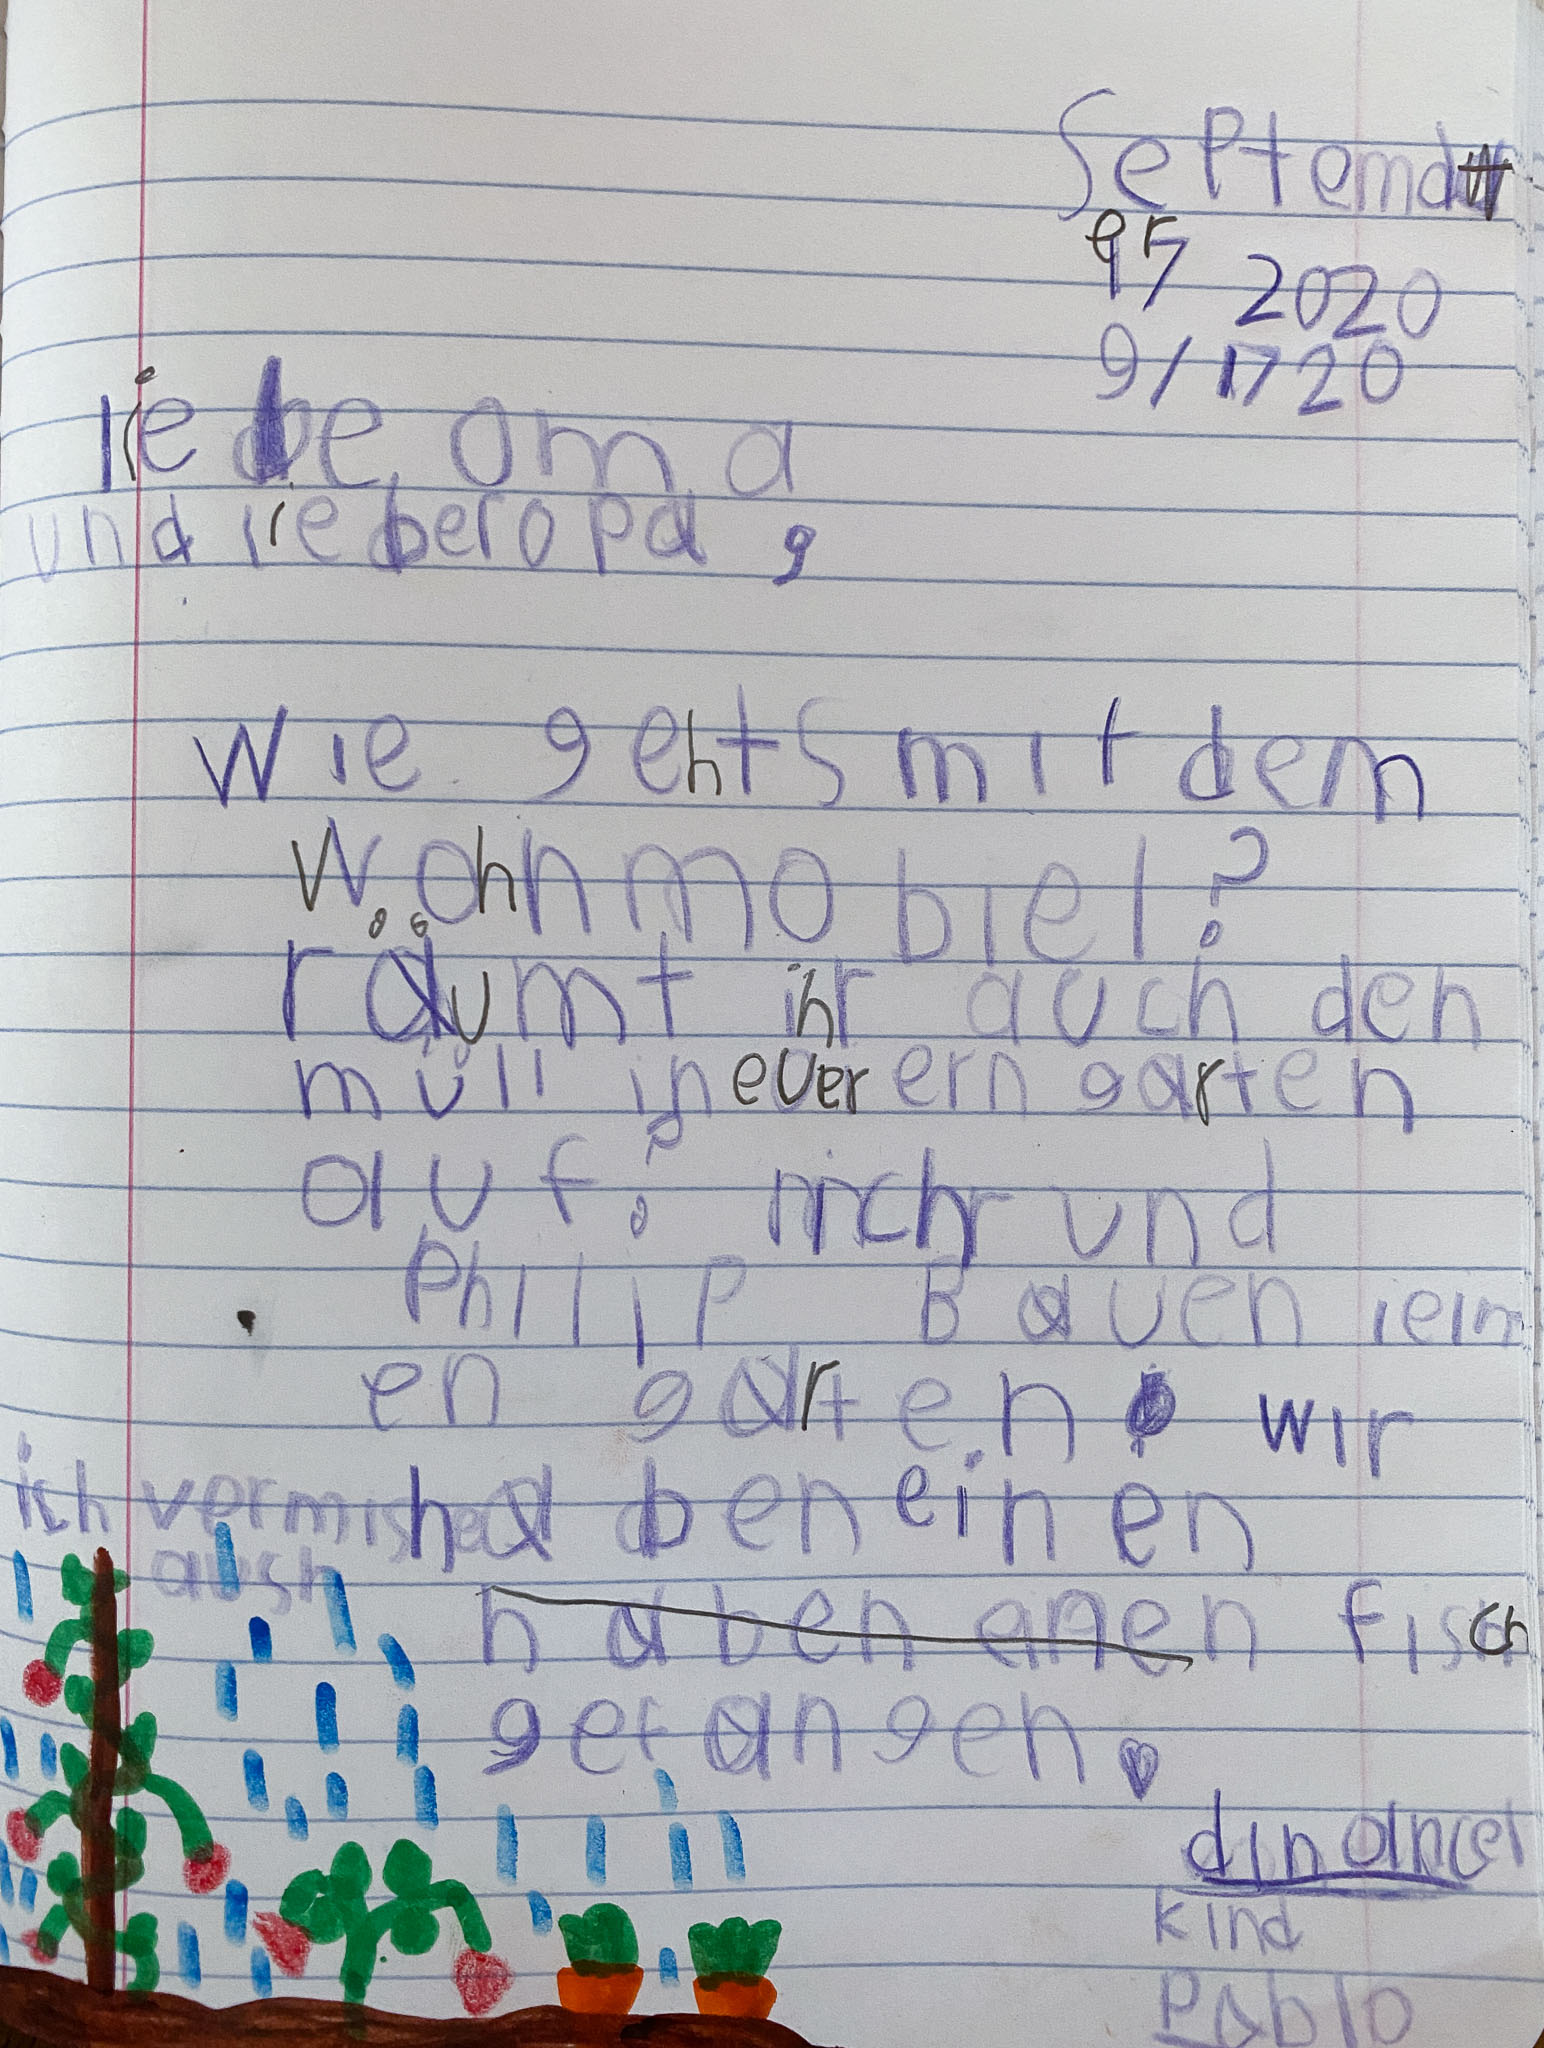 September
17 2020
9/1720
liebe oma
und lieber opa,
Wie gehts mit dem
Wohnmobiel?
räumt ihr auch den
müll in euer ern garten
auf? und
Philip Bauen
en garten. wir
haben einen
ich vermishe
aush
haben einen fisch
gefangen.
din
kind
Pablo